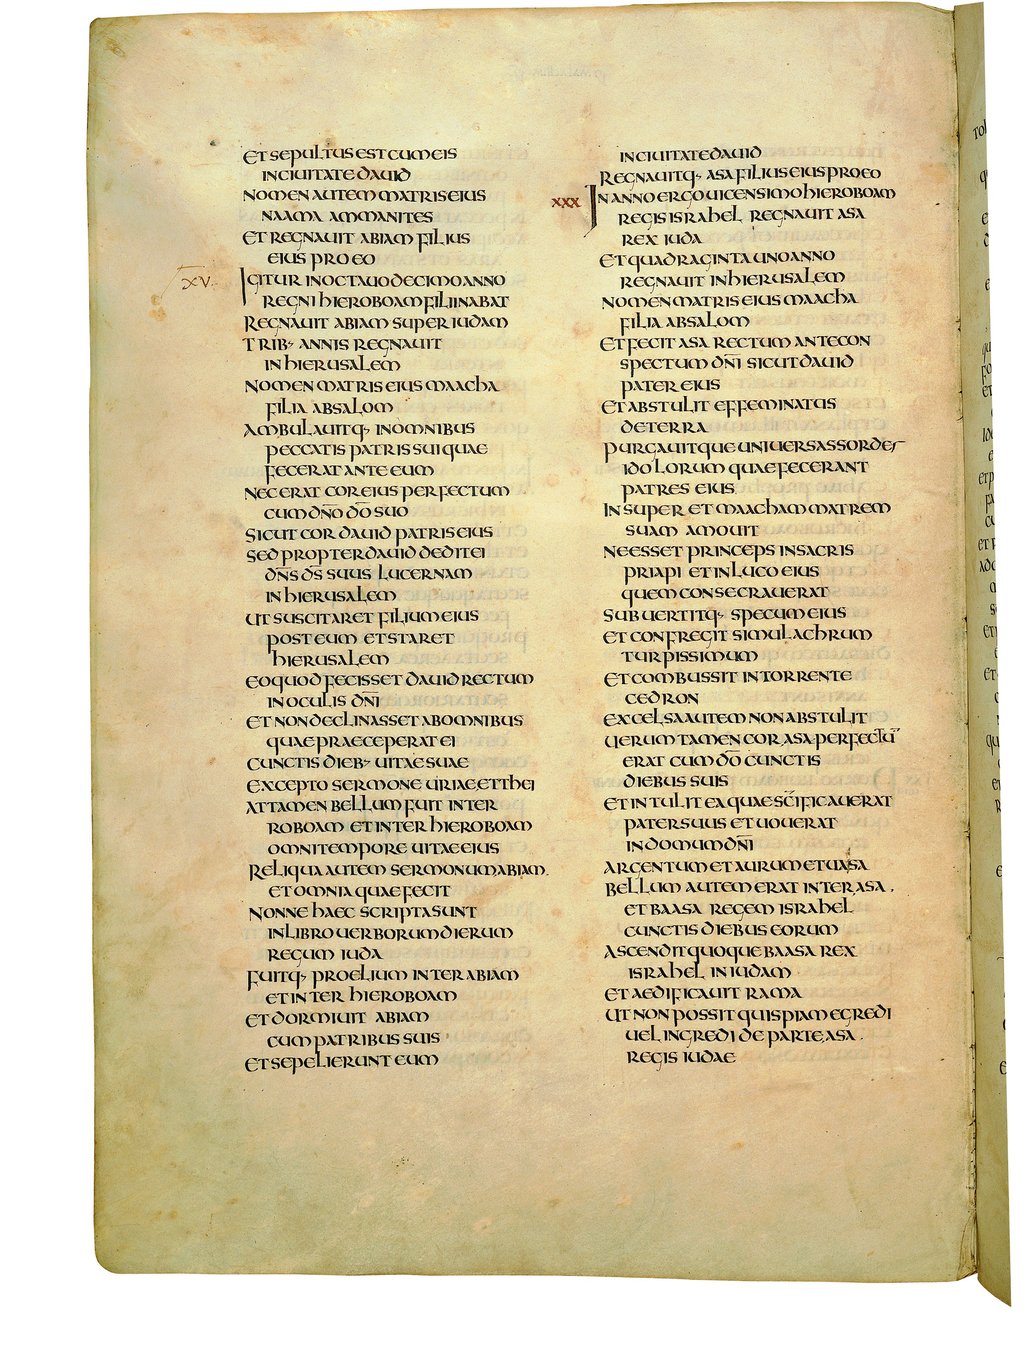 ET SEPULTUS EST CUM EIS
IN CIUITATE DAUID
NOMEN AUTEM MATRIS EIUS
NAAMA AMMANITES
ET REGNAUIT ABIAM FILIUS
EIUS PRO EO
XV
IGITUR IN OCTAUO DECIMO ANNO
REGNI HIEROBOAM FILII NABAT
REGNAUIT ABIAM SUPER IUDAM
TRIB· ANNIS REGNAUIT
IN HIERUSALEM
NOMEN MATRIS EIUS MAACHA
FILIA ABSALOM
AMBULAUITQ· IN OMNIBUS
PECCATIS PATRIS SUI QUAE
FECERAT ANTE EUM
NEC ERAT COR EIUS PERFECTUM
CUM DN̄O D̄O SUO
SICUT COR DAUID PATRIS EIUS
SED PROPTER DAUID DEDIT EI
DN̄S D̄S SUUS LUCERNAM
IN HIERUSALEM
UT SUSCITARET FILIUM EIUS
POST EUM ET STARET
HIERUSALEM
EO QUOD FECISSET DAUID RECTUM
IN OCULIS DN̄I
ET NON DECLINASSET AB OMNIBUS
QUAE PRAECEPERAT EI
CUNCTIS DIEB· UITAE SUAE
EXCEPTO SERMONE URIAE ETTHEI
ATTAMEN BELLUM FUIT INTER
ROBOAM ET INTER HIEROBOAM
OMNI TEMPORE UITAE EIUS
RELIQUA AUTEM SERMONUM ABIAM.
ET OMNIA QUAE FECIT
NONNE HAEC SCRIPTA SUNT
IN LIBRO UERBORUM DIERUM
REGUM IUDA
FUITQ· PROELIUM INTER ABIAM
ET INTER HIEROBOAM
ET DORMIUIT ABIAM
CUM PATRIBUS SUIS
ET SEPELIERUNT EUM
IN CIUITATE DAUID
REGNAUITQ· ASA FILIUS EIUS PRO EO
XXX
IN ANNO ERGO UICENSIMO HIEROBOAM
REGIS ISRAHEL REGNAUIT ASA
REX IUDA
ET QUADRAGINTA UNO ANNO
REGNAUIT IN HIERUSALEM
NOMEN MATRIS EIUS MAACHA
FILIA ABSALOM
ET FECIT ASA RECTUM ANTE CON
SPECTUM DN̄I SICUT DAUID
PATER EIUS
ET ABSTULIT EFFEMINATUS
DE TERRA
PURGAUITQUE UNIUERSAS SORDES
IDOLORUM QUAE FECERANT
PATRES EIUS
INSUPER ET MAACHAM MATREM
SUAM AMOUIT
NE ESSET PRINCEPS IN SACRIS
PRIAPI ET IN LUCO EIUS
QUEM CONSECRAUERAT
SUBUERTITQ· SPECUM EIUS
ET CONFREGIT SIMULACHRUM
TURPISSIMUM
ET COMBUSSIT IN TORRENTE
CEDRON
EXCELSA AUTEM NON ABSTULIT
UERUM TAMEN COR ASA PERFECTŪ
ERAT CUM D̄O CUNCTIS
DIEBUS SUIS
ET INTULIT EA QUAE SC̄IFICAUERAT
PATER SUUS ET UOUERAT
IN DOMUM DN̄I
ARGENTUM ET AURUM ET UASA
BELLUM AUTEM ERAT INTER ASA.
ET BAASA REGEM ISRAHEL
CUNCTIS DIEBUS EORUM
ASCENDIT QUOQUE BAASA REX
ISRAHEL IN IUDAM
ET AEDIFICAUIT RAMA
UT NON POSSIT QUISPIAM EGREDI
UEL INGREDI DE PARTE ASA.
REGIS IUDAE